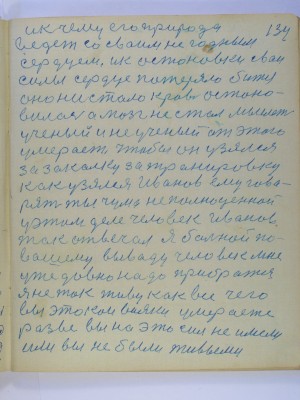 134
ик чему его природа
ведет со своим не годным
сердцем, ик остоновки свои
силы сердце потеряло битя
оно нистало кровь остоно-
вилося а мозг не стал мыслить
ученый и не ученый от этого
умерает чтобы он узялся
за закалку за транировку
как узялся Иванов Ему гово-
рят ты чуш неполноценной
у этом деле человек Иванов.
так отвечал Я больной по-
вашему вываду человек мне
уже довно надо прибратся
я не ток живу как все чего
вы это кои вояки умераете
разве вы на это сил не имели
или вы не были живыми